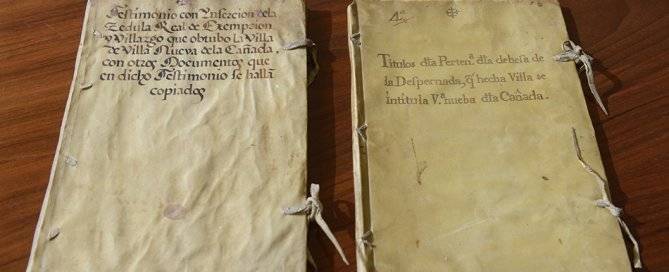 Testimonio con Ynsezcion dela
Zedula Real de Exempcion
y Villazgo que obtubo la Villa
de Villa Nueva dela Cañada,
con otros Documentos que
en dicho Testimonio se hallã
copiados
4º
Titulos dla Pertenª dla debesa de
la Despernada, q̃ hecha Villa se
intitula Vª nueba dla Cañada.